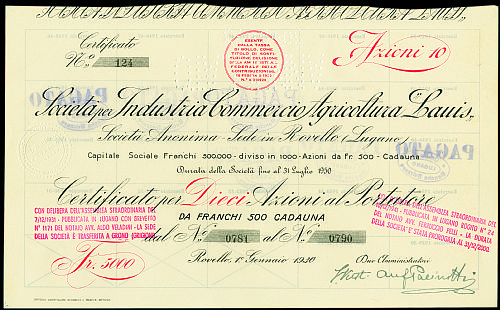 Certificato
N.º 124
ESENTE
DALLA TASSA
DI BOLLO, COME
FEDERALE DELLE
CONTRIBUZIONI
Azioni 10
Società per Industria Commercio Agricoltura "Lauis"
Società Anonima - Sede in Rovello (Lugano)
PAGATO
PAGATO
Capitale Sociale Franchi 500.000 - diviso in 1000 - Azioni da Fr. 500 - Cadauna
Durata della Società fino al 31 Luglio 1950
Certificato per Dieci Azioni al Portatore
DA FRANCHI 500 CADAUNA
dal N.º 0781 al N.º 0790
CON DELIBERA DELL'ASSEMBLEA STRAORDINARIA DEL
7/12/1931 - PUBBLICATA IN LUGANO CON BREVETTO
N° 1171 DEL NOTAIO AVV. ALDO VELADINI - LA SEDE
DELLA SOCIETÀ È TRASFERITA A GRONO (GRIGIONI)
ASSEMBLEA STRAORDINARIA DEL
PUBBLICATA IN LUGANO ROGITO N° 24
DEL NOTAIO AVV. FERRUCCIO PELLI - LA DURATA
DELLA SOCIETÀ È STATA PROROGATA AL 31/12/2000
Fr. 5000
Rovello, 1º Gennaio 1930
Due Amministratori